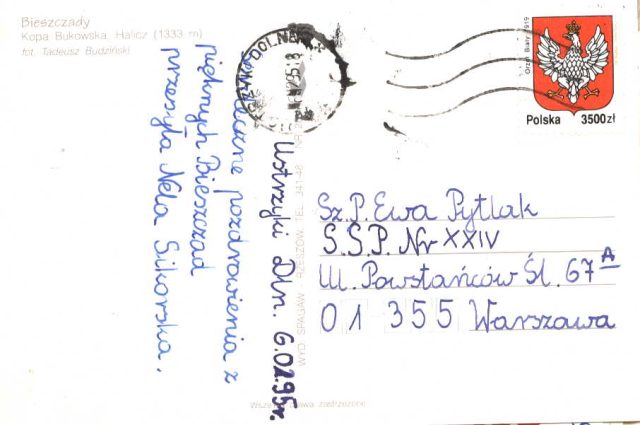 Bieszczady
Kopa Bukowska. Halicz (1333 m)
fot. Tadeusz Budziński
Orzeł Biały 1919
Polska 3500zł
Ustrzyki Dln. 6.02.95r.
pozdrowienia z
pięknych Bieszczad
przesyła Nela Sikorska.
Sz.P. Ewa Pytlak
S.S.P. Nr XXIV
Ul. Powstańców Śl. 67A
01 355 Warszawa
WYD. SPAGAW - RZESZÓW, TEL. 341-48
zastrzeżone